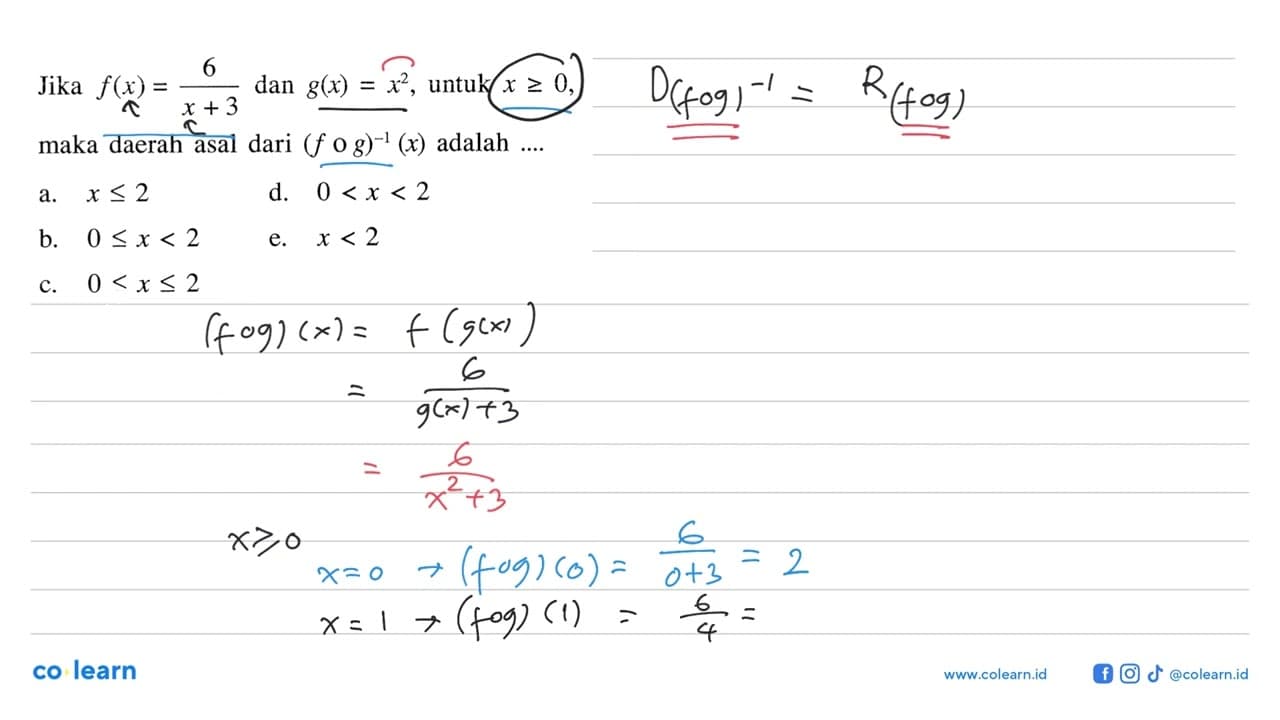 Jika f(x) = 6/(x + 3) dan g(x) = x², untuk x ≥ 0,
maka daerah asal dari (f o g)⁻¹ (x) adalah ....
a. x ≤ 2 d. 0 < x < 2
b. 0 ≤ x < 2 e. x < 2
c. 0 < x ≤ 2
D(fog)⁻¹ = R(fog)
(fog)(x) = f(g(x))
= 6/(g(x)+3)
= 6/(x²+3)
x ≥ 0
x = 0 → (fog)(0) = 6/(0+3) = 2
x = 1 → (fog)(1) = 6/4 =
co learn
www.colearn.id
@colearn.id